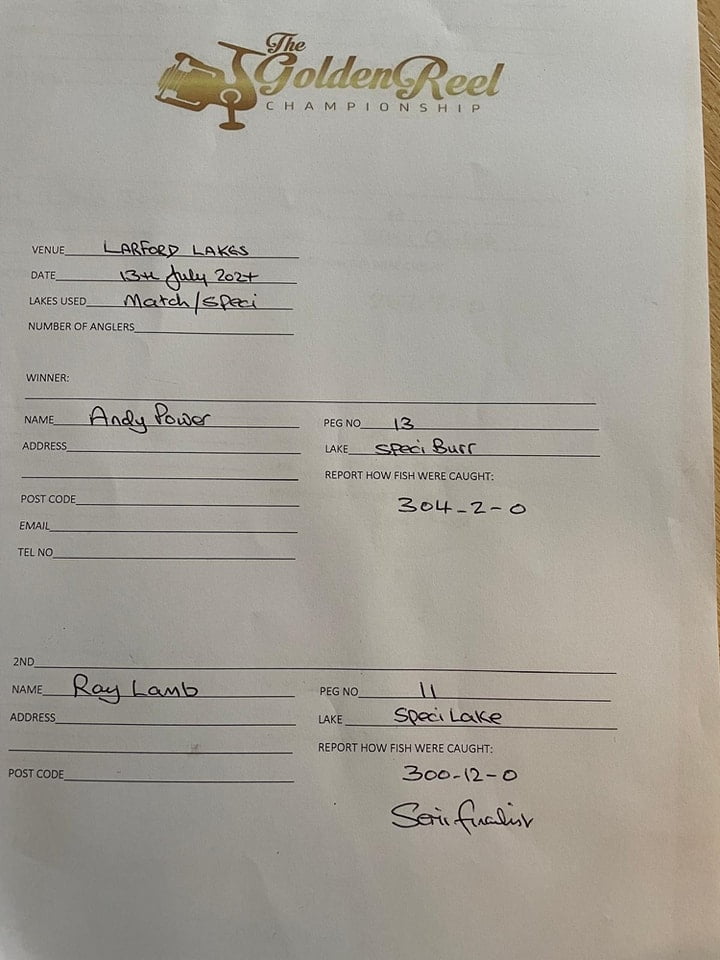 The
Golden Reel
CHAMPIONSHIP
VENUE LARFORD LAKES
DATE 13th July 2024
LAKES USED Match/Speci
NUMBER OF ANGLERS
WINNER:
NAME Andy Power
PEG NO 13
ADDRESS
LAKE Speci Burr
REPORT HOW FISH WERE CAUGHT:
304-2-0
POST CODE
EMAIL
TEL NO
2ND
NAME Ray Lamb
PEG NO 11
ADDRESS
LAKE Speci Lake
REPORT HOW FISH WERE CAUGHT:
POST CODE
300-12-0
Semi finalist